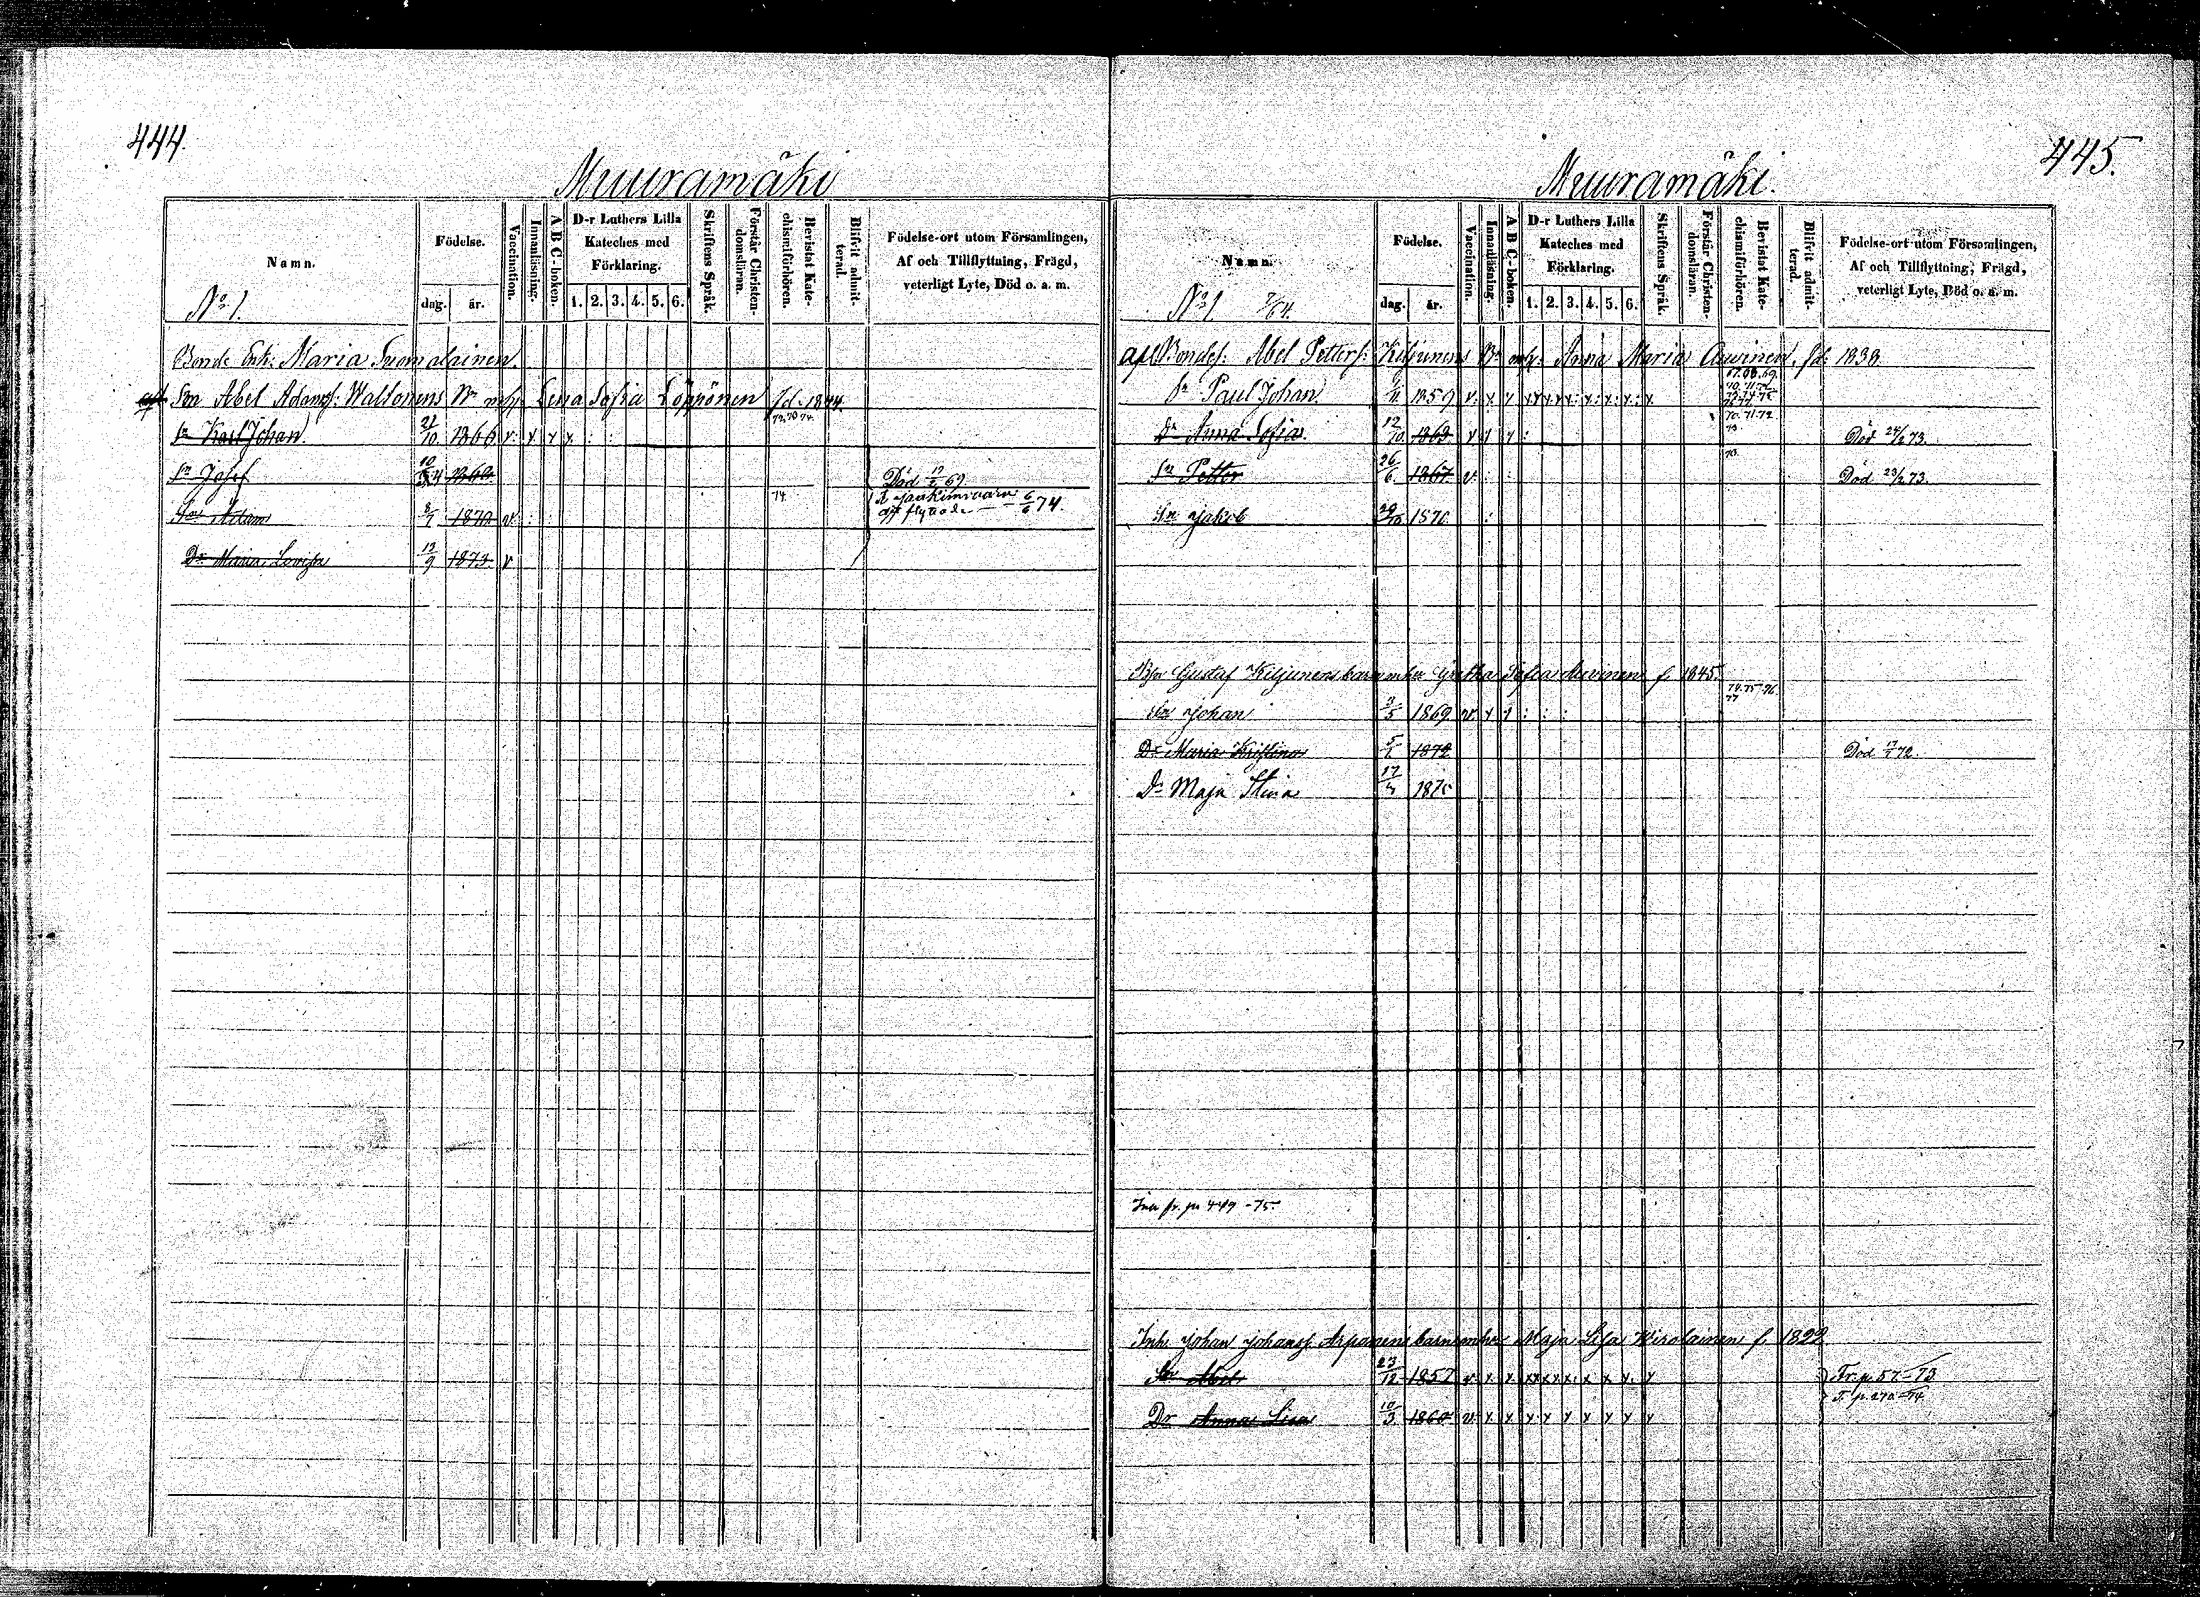 444.
Muuramäki
Namn.
Födelse.
dag.
år.
Vaccination.
Innanläsning.
A B C-boken.
D-r Luthers Lilla
Kateches med
Förklaring.
1. 2. 3. 4. 5. 6.
Skriftens Språk.
Förstår Christen-
domsläran.
Bevistat Kate-
chismiförhören.
Blifvit admit-
terad.
Födelse-ort utom Församlingen,
Af och Tillflyttning, Frägd,
veterligt Lyte, Död o. a. m.
No 1.
Bonde Enk: Maria Suomalainen.
Son Abel Adamss: Waltonens Bn m. h: Lena Sofia Löppönen fd. 1844.
Sn Karl Johan 21/10 1866 v. x x x
Sn Josef 1868 Död 69
Son Adam 8/7 1870 v. 74. flyttade 6/6 74.
Dr Maria Lovisa 12/9 1873 v
445.
Muuramäki.
Namn.
Födelse.
dag.
år.
Vaccination.
Innanläsning.
A B C-boken.
D-r Luthers Lilla
Kateches med
Förklaring.
1. 2. 3. 4. 5. 6.
Skriftens Språk.
Förstår Christen-
domsläran.
Bevistat Kate-
chismiförhören.
Blifvit admit-
terad.
Födelse-ort utom Församlingen,
Af och Tillflyttning, Frägd,
veterligt Lyte, Död o. a. m.
No 1
Bondes: Abel Petters: Kiljunens Bn m. h: Anna Maria Auvinen, fd: 1838.
Sn Paul Johan 1859 v. x x
67. 68. 69.
Dr Anna Sofia. 12/10 1863 70. 71. 72. Död 24/2 73.
Sn Petter 26/6 1867 v. 70. Död 23/2 73.
Sn Jakob 1870
Bn Gustaf Kiljunens barn m hu Gretha Sofia Auvinen f. 1845.
74. 75. 76.
77
Sn Johan 3/5 1869 v. x x
Dr Maria Kristina 5/1 1872 Död 72.
Dr Maja Stina 17/4 1875
Inh fr. pn 449 - 75.
Inh. Johan Johanss. Arponens barn m hu Maja Lisa Wirolainen f. 1822
Sn Abel 23/12 1857 v. x. x. Fr. p. 57 - 73
T. p. 270 - 74
Dr Anna Lisa 10/3 1860 v. x x